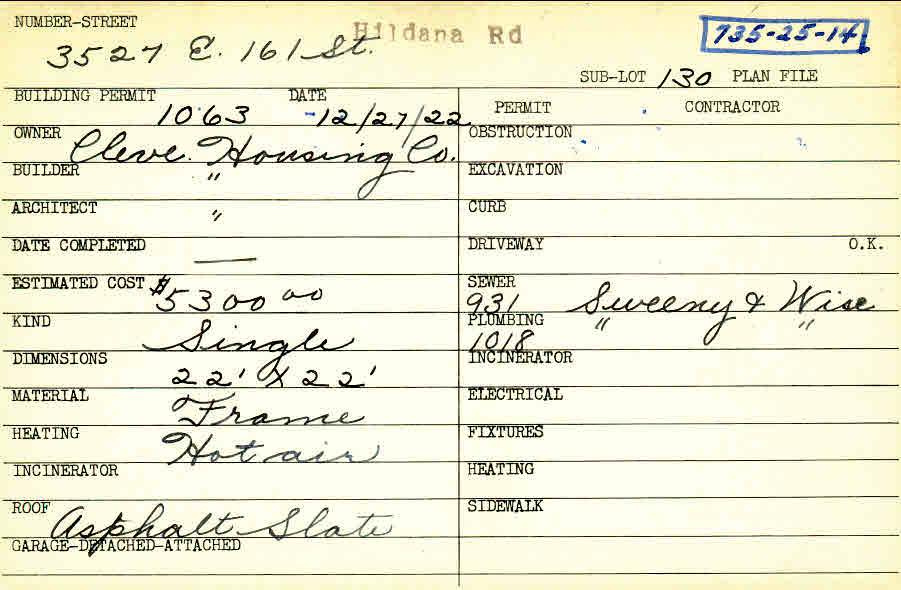 NUMBER-STREET
Hildana Rd
735-25-14
3527 E. 161 St.
SUB-LOT 130 PLAN FILE
BUILDING PERMIT DATE
1063 12/27/22
PERMIT CONTRACTOR
OWNER Cleve. Housing Co.
OBSTRUCTION
BUILDER "
EXCAVATION
ARCHITECT "
CURB
DATE COMPLETED —
DRIVEWAY O.K.
ESTIMATED COST $5300 00
SEWER
931 Sweeny & Wise
KIND Single
PLUMBING " "
1018
DIMENSIONS 22' X 22'
INCINERATOR
MATERIAL Frame
ELECTRICAL
HEATING Hot air
FIXTURES
INCINERATOR
HEATING
ROOF Asphalt Slate
SIDEWALK
GARAGE-DETACHED-ATTACHED